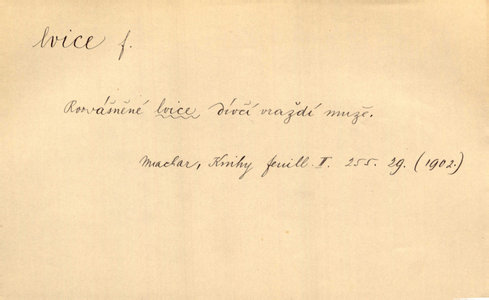 lvice f.
Rozvášněné lvice dívčí vraždí muže.
Machar, Knihy feuill. II. 255. 29. (1902.)